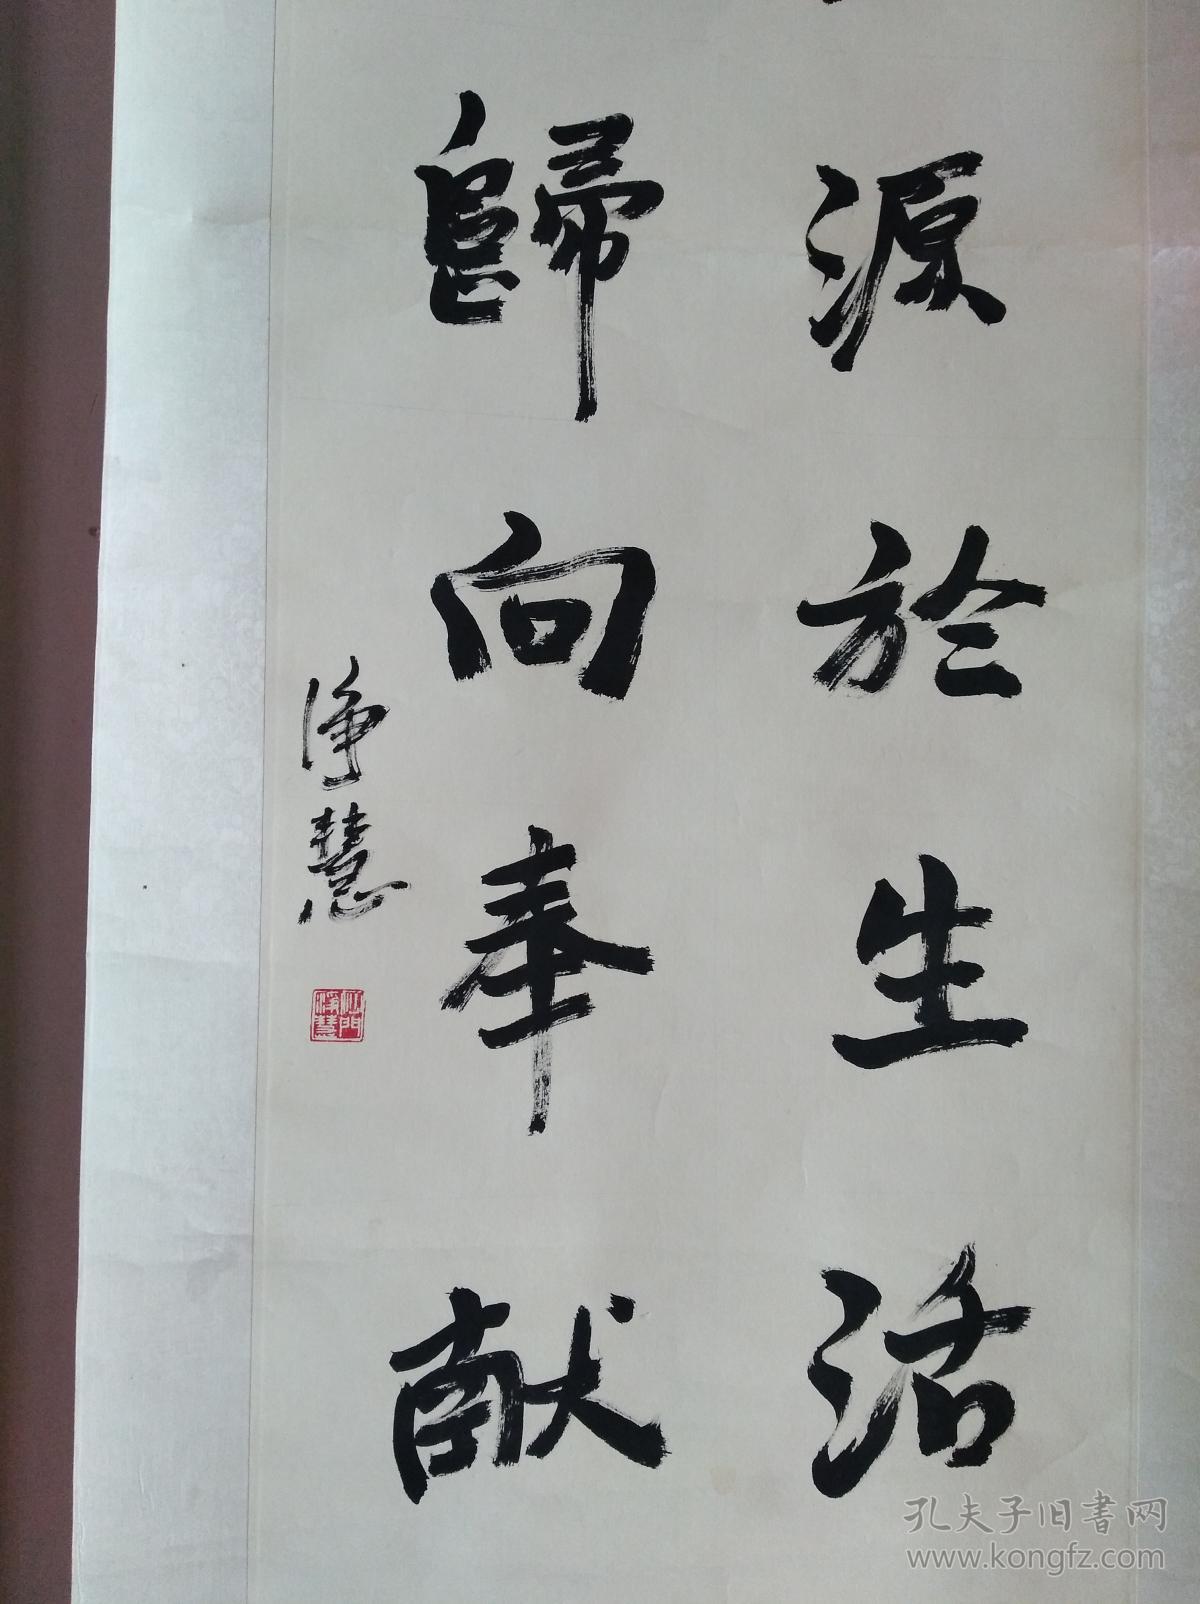 源於生活
歸向奉献
淨慧
沙門淨慧
孔夫子旧書网
www.kongfz.com